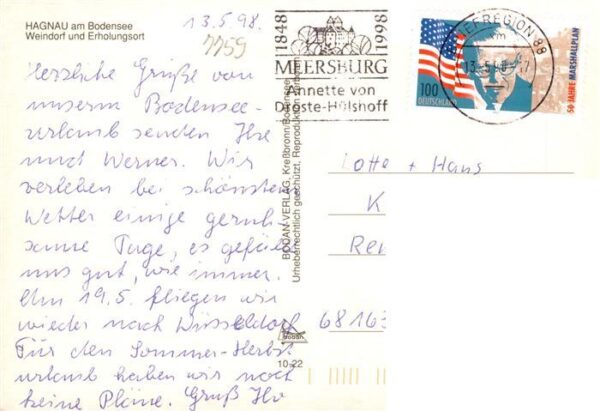 HAGNAU am Bodensee
Weindorf und Erholungsort
13.5.98.
7759
Herzliche Grüße von
unserm Bodensee-
urlaub senden Ihre
und Werner. Wir
verleben bei schönstem
Wetter einige geruh-
same Tage, es gefällt
uns gut, wie immer.
Am 19.5. fliegen wir
wieder nach Düsseldorf
Für den Sommer-Herbst
urlaub haben wir noch
keine Pläne. Gruß
BODAN-VERLAG, Kreßbronn/Bodensee
Urheberrechtlich geschützt, Reproduktion
BODAN
10-22
1848
1998
MEERSBURG
Annette von
Droste-Hülshoff
EEREGION 88
100
DEUTSCHLAND
50 JAHRE MARSHALLPLAN
Lotte + Hans
K
Re
68163